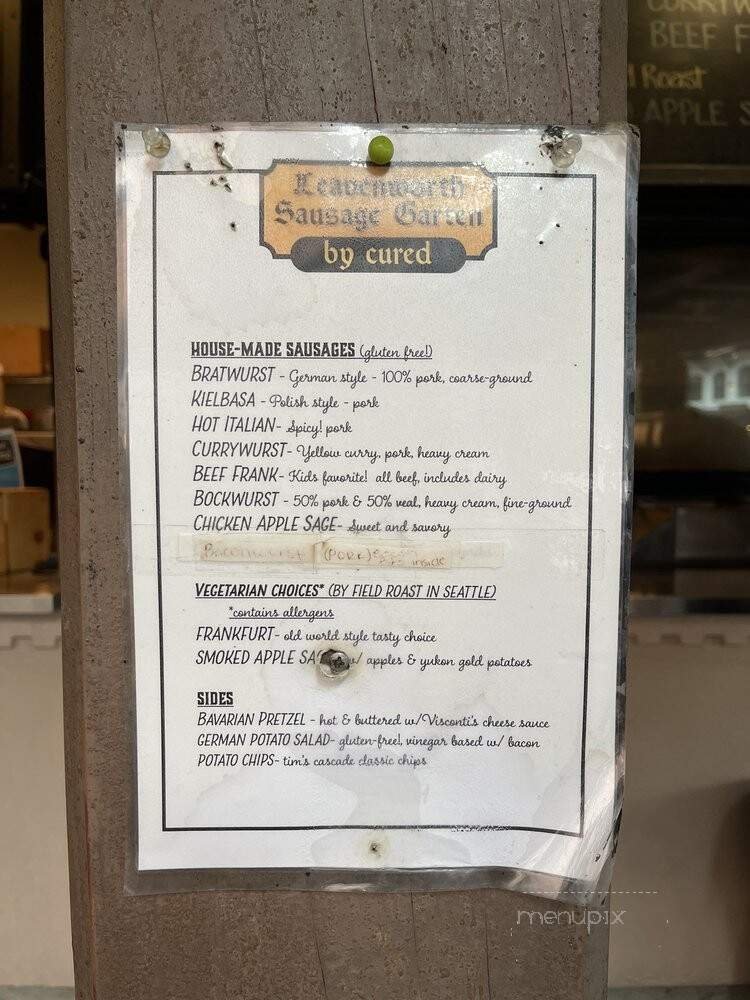 CURRYW
BEEF F
Roast
APPLE S
Leavenworth
Sausage Garten
by cured
HOUSE-MADE SAUSAGES (gluten free!)
BRATWURST - German style - 100% pork, coarse-ground
KIELBASA - Polish style - pork
HOT ITALIAN- Spicy! pork
CURRYWURST- Yellow curry, pork, heavy cream
BEEF FRANK- Kids favorite! all beef, includes dairy
BOCKWURST - 50% pork & 50% veal, heavy cream, fine-ground
CHICKEN APPLE SAGE- Sweet and savory
(PORK) inside
VEGETARIAN CHOICES* (BY FIELD ROAST IN SEATTLE)
*contains allergens
FRANKFURT- old world style tasty choice
SMOKED APPLE SA w/ apples & yukon gold potatoes
SIDES
BAVARIAN PRETZEL - hot & buttered w/Visconti's cheese sauce
GERMAN POTATO SALAD- gluten-free!, vinegar based w/ bacon
POTATO CHIPS- tim's cascade classic chips
menupix